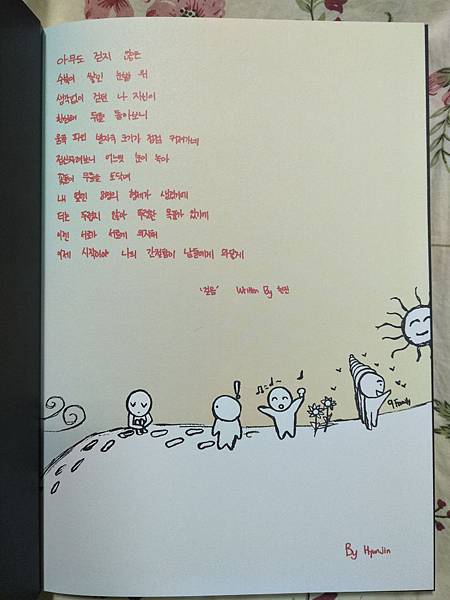 아무도 걷지 않은
수북이 쌓인 눈밭 위
생각없이 걷던 나 자신이
한심해 뒤를 돌아보니
움푹 파인 발자국 크기가 점점 커져가네
정신차려보니 어느덧 눈이 녹아
꽃들이 무릎을 토닥여
내 옆엔 8명의 형제가 생겼기에
더는 두렵지 않아 뚜렷한 목표가 있기에
이젠 서로가 서로에게 의지해
이제 시작이야 나의 간절함이 남들에게 와닿게
'걸음' Written By 현진
By HyunJin